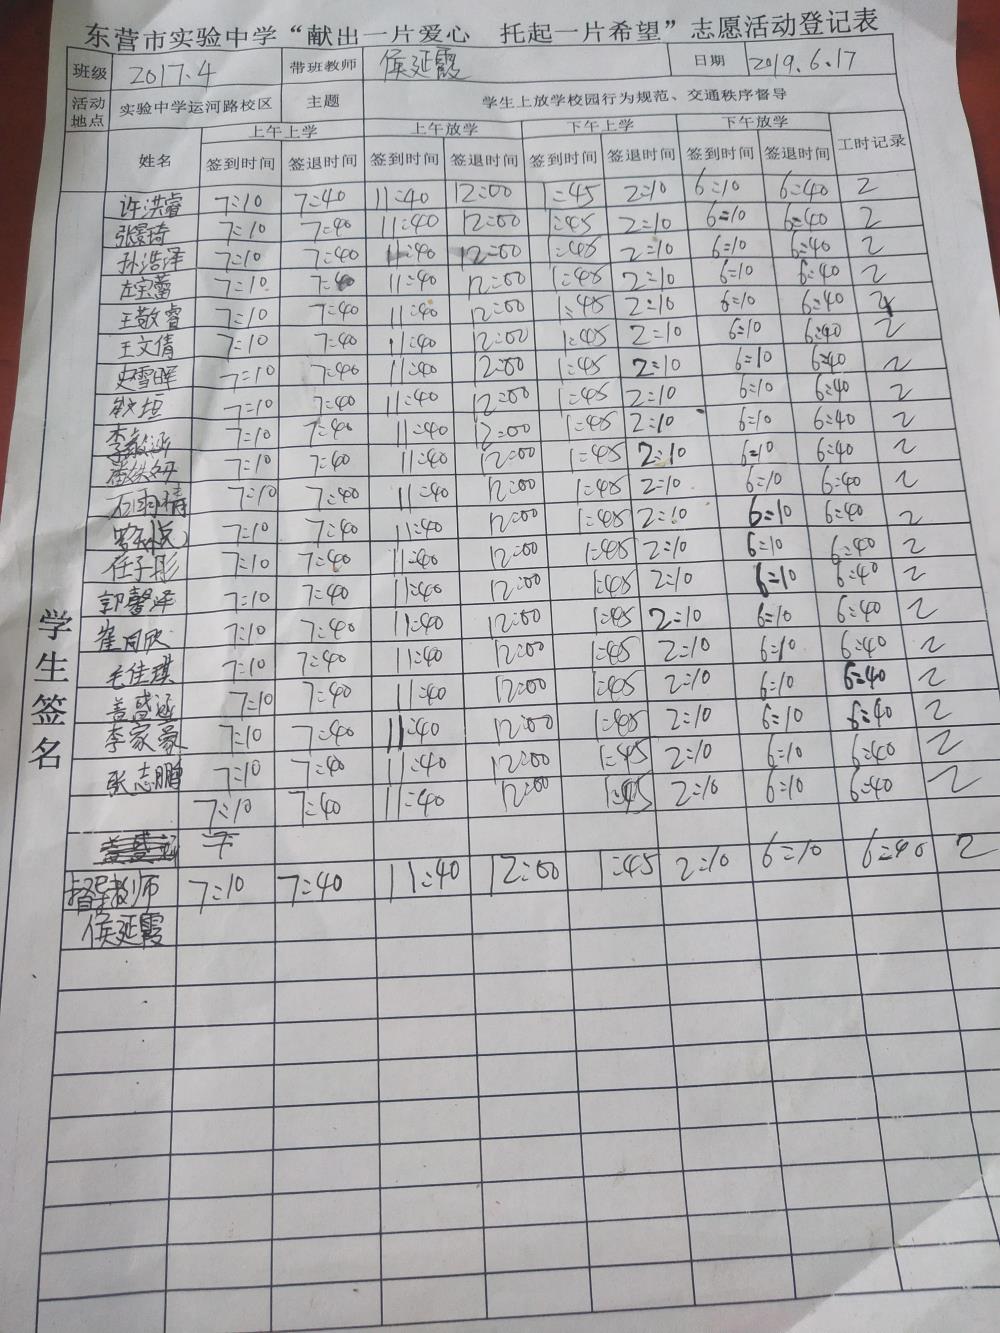 东营市实验中学“献出一片爱心 托起一片希望”志愿活动登记表
班级 2017.4 带班教师 侯延霞 日期 2019.6.17
活动地点 实验中学运河路校区 主题 学生上放学校园行为规范、交通秩序督导
姓名 上午上学 上午放学 下午上学 下午放学 工时记录
签到时间 签退时间 签到时间 签退时间 签到时间 签退时间 签到时间 签退时间
学生签名
许洪睿 7:10 7:40 11:40 12:00 1:45 2:10 6:10 6:40 2
张景琦 7:10 7:40 11:40 12:00 1:45 2:10 6:10 6:40 2
孙浩泽 7:10 7:40 11:40 12:00 1:45 2:10 6:10 6:40 2
左宝蕾 7:10 7:40 11:40 12:00 1:45 2:10 6:10 6:40 2
王敬睿 7:10 7:40 11:40 12:00 1:45 2:10 6:10 6:40 2
王文倩 7:10 7:40 11:40 12:00 1:45 2:10 6:10 6:40 2
史雪晖 7:10 7:40 11:40 12:00 1:45 2:10 6:10 6:40 2
7:10 7:40 11:40 12:00 1:45 2:10 6:10 6:40 2
7:10 7:40 11:40 12:00 1:45 2:10 6:10 6:40 2
7:10 7:40 11:40 12:00 1:45 2:10 6:10 6:40 2
石雨晴 7:10 7:40 11:40 12:00 1:45 2:10 6:10 6:40 2
7:10 7:40 11:40 12:00 1:45 2:10 6:10 6:40 2
任子彤 7:10 7:40 11:40 12:00 1:45 2:10 6:10 6:40 2
郭馨泽 7:10 7:40 11:40 12:00 1:45 2:10 6:10 6:40 2
崔同欣 7:10 7:40 11:40 12:00 1:45 2:10 6:10 6:40 2
毛佳琪 7:10 7:40 11:40 12:00 1:45 2:10 6:10 6:40 2
盖盛涵 7:10 7:40 11:40 12:00 1:45 2:10 6:10 6:40 2
李家豪 7:10 7:40 11:40 12:00 1:45 2:10 6:10 6:40 2
张志鹏 7:10 7:40 11:40 12:00 1:45 2:10 6:10 6:40 2
7:10 7:40 11:40 12:00 1:45 2:10 6:10 6:40 2
督导教师 7:10 7:40 11:40 12:00 1:45 2:10 6:10 6:40 2
侯延霞